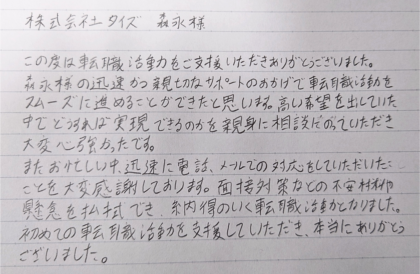 株式会社タイズ 森永様
この度は転職活動をご支援いただきありがとうございました。
森永様の迅速かつ親切なサポートのおかげで転職活動を
スムーズに進めることができたと思います。高い希望を出していた
中でどうすれば実現できるのかを親身に相談にのっていただき
大変心強かったです。
またお忙しい中、迅速に電話、メールでの対応をしていただいた
ことを大変感謝しております。面接対策などの不安材料や
懸念を払拭でき、納得のいく転職活動となりました。
初めての転職活動を支援していただき、本当にありがとう
ございました。